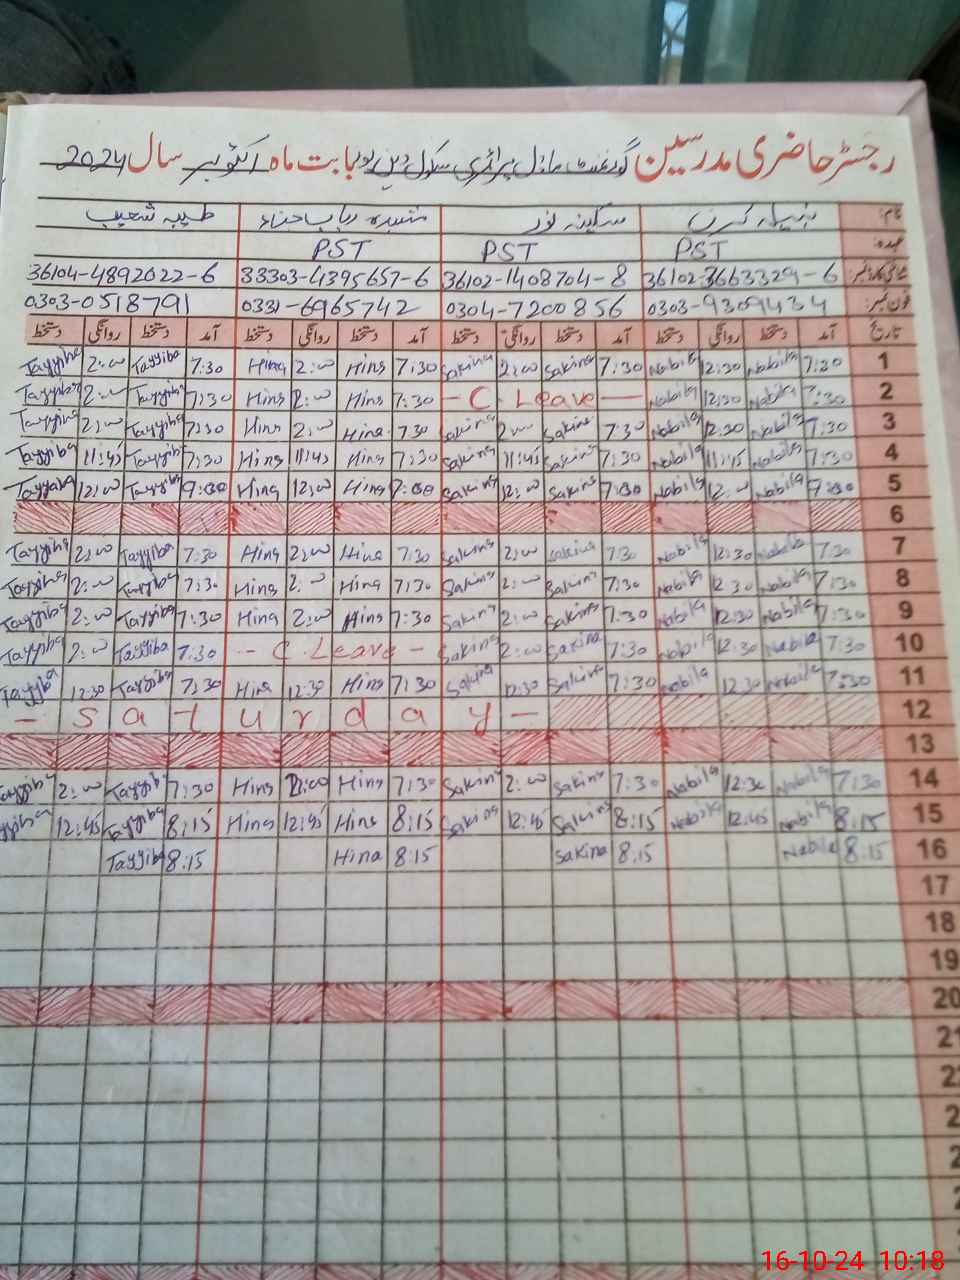 رجسٹر حاضری مدرسین گورنمنٹ ماڈل پرائمری سکول دین پور بابت ماہ اکتوبر سال 2024
نام: نبیلہ کرن سکینہ نور رباب حناء طیبہ شعیب
عہدہ: PST PST PST
شناختی کارڈ نمبر: 36102-3663329-6 36102-1408704-8 33303-4395657-6 36104-4892022-6
فون نمبر: 0303-9309434 0304-7200856 0331-6965742 0303-0518791
تاریخ آمد دستخط روانگی دستخط آمد دستخط روانگی دستخط آمد دستخط روانگی دستخط آمد دستخط روانگی دستخط
1 7:30 Nabila 12:30 Nabila 7:30 Sakina 2:00 Sakina 7:30 Hina 2:00 Hina 7:30 Tayyiba 2:00 Tayyiba
2 7:30 Nabila 12:30 Nabila - C. Leave - 7:30 Hina 2:00 Hina 7:30 Tayyiba 2:00 Tayyiba
3 7:30 Nabila 12:30 Nabila 7:30 Sakina 2:00 Sakina 7:30 Hina 2:00 Hina 7:30 Tayyiba 2:00 Tayyiba
4 7:30 Nabila 11:45 Nabila 7:30 Sakina 11:45 Sakina 7:30 Hina 11:45 Hina 7:30 Tayyiba 11:45 Tayyiba
5 Nabila 12:00 Nabila Sakina 12:00 Sakina Hina 12:00 Hina Tayyiba 12:00 Tayyiba
6
7 7:30 Nabila 12:30 Nabila 7:30 Sakina 2:00 Sakina 7:30 Hina 2:00 Hina 7:30 Tayyiba 2:00 Tayyiba
8 7:30 Nabila 12:30 Nabila 7:30 Sakina 2:00 Sakina 7:30 Hina 2:00 Hina 7:30 Tayyiba 2:00 Tayyiba
9 7:30 Nabila 12:30 Nabila 7:30 Sakina 2:00 Sakina 7:30 Hina 2:00 Hina 7:30 Tayyiba 2:00 Tayyiba
10 7:30 Nabila 12:30 Nabila 7:30 Sakina 2:00 Sakina - C. Leave - 7:30 Tayyiba 2:00 Tayyiba
11 7:30 Nabila 12:30 Nabila 7:30 Sakina 12:30 Sakina 7:30 Hina 12:30 Hina 7:30 Tayyiba 12:30 Tayyiba
12 - Saturday -
13
14 7:30 Nabila 12:30 Nabila 7:30 Sakina 2:00 Sakina 7:30 Hina 2:00 Hina 7:30 Tayyiba 2:00 Tayyiba
15 8:15 Nabila 12:45 Nabila 8:15 Sakina 12:45 Sakina 8:15 Hina 12:45 Hina 8:15 Tayyiba 12:45 Tayyiba
16 8:15 Nabila 8:15 Sakina 8:15 Hina 8:15 Tayyiba
17
18
19
20
21
16-10-24 10:18